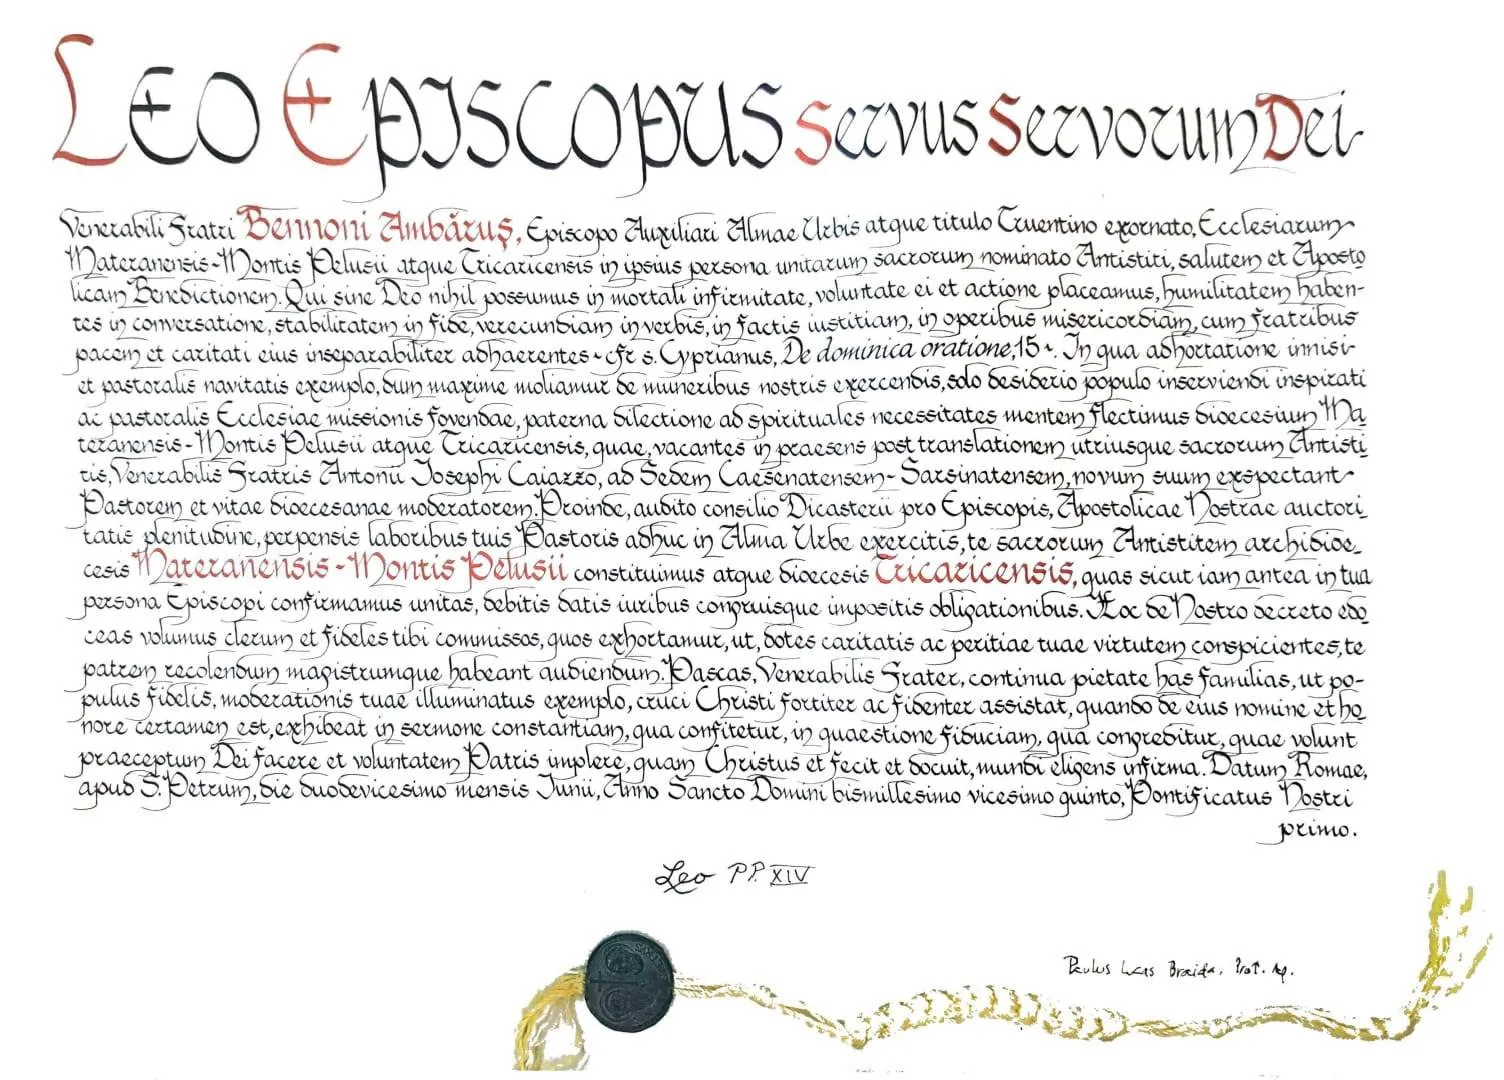 Leo Episcopus Servus Servorum Dei
Venerabili Fratri Bennoni Ambăruș, Episcopo Auxiliari Almae Urbis atque titulo Truentino exornato, Ecclesiarum
Materanensis-Montis Pelusii atque Tricaricensis in ipsius persona unitarum sacrorum nominato Antistiti, salutem et Aposto
licam Benedictionem. Qui sine Deo nihil possumus in mortali infirmitate, voluntate ei et actione placeamus, humilitatem haben-
tes in conversatione, stabilitatem in fide, verecundiam in verbis, in factis iustitiam, in operibus misericordiam, cum fratribus
pacem et caritati eius inseparabiliter adhaerentes - cfr s. Cyprianus, De dominica oratione, 15 -. In qua adhortatione innisi
et pastoralis navitatis exemplo, dum maxime moliamur de muneribus nostris exercendis, solo desiderio populo inserviendi inspirati
ac pastoralis Ecclesiae missionis fovendae, paterna dilectione ad spirituales necessitates mentem flectimus dioecesium Ma
teranensis-Montis Pelusii atque Tricaricensis, quae, vacantes in praesens post translationem utriusque sacrorum Antisti
tis, Venerabilis Fratris Antonii Iosephi Caiazzo, ad Sedem Caesenatensem-Sarsinatensem, novum suum exspectant
Pastorem et vitae dioecesanae moderatorem. Proinde, audito consilio Dicasterii pro Episcopis, Apostolicae Nostrae auctori
tatis plenitudine, perpensis laboribus tuis Pastoris adhuc in Alma Urbe exercitis, te sacrorum Antistitem archidioe
cesis Materanensis-Montis Pelusii constituimus atque dioecesis Tricaricensis, quas sicut iam antea in tua
persona Episcopi confirmamus unitas, debitis datis iuribus congruisque impositis obligationibus. Hoc de Nostro decreto edo
ceas volumus clerum et fideles tibi commissos, quos exhortamur, ut, dotes caritatis ac peritiae tuae virtutem conspicientes, te
patrem recolendum magistrumque habeant audiendum. Pascas, Venerabilis Frater, continua pietate has familias, ut po-
pulus fidelis, moderationis tuae illuminatus exemplo, cruci Christi fortiter ac fidenter assistat, quando de eius nomine et ho
nore certamen est, exhibeat in sermone constantiam, qua confitetur, in quaestione fiduciam, qua congreditur, quae volunt
praeceptum Dei facere et voluntatem Patris implere, quam Christus et fecit et docuit, mundi eligens infirma. Datum Romae,
apud S. Petrum, die duodevicesimo mensis Iunii, Anno Sancto Domini bismillesimo vicesimo quinto, Pontificatus Nostri
primo.
Leo PP. XIV
Paulus Lucas Braida, Prot. Ap.